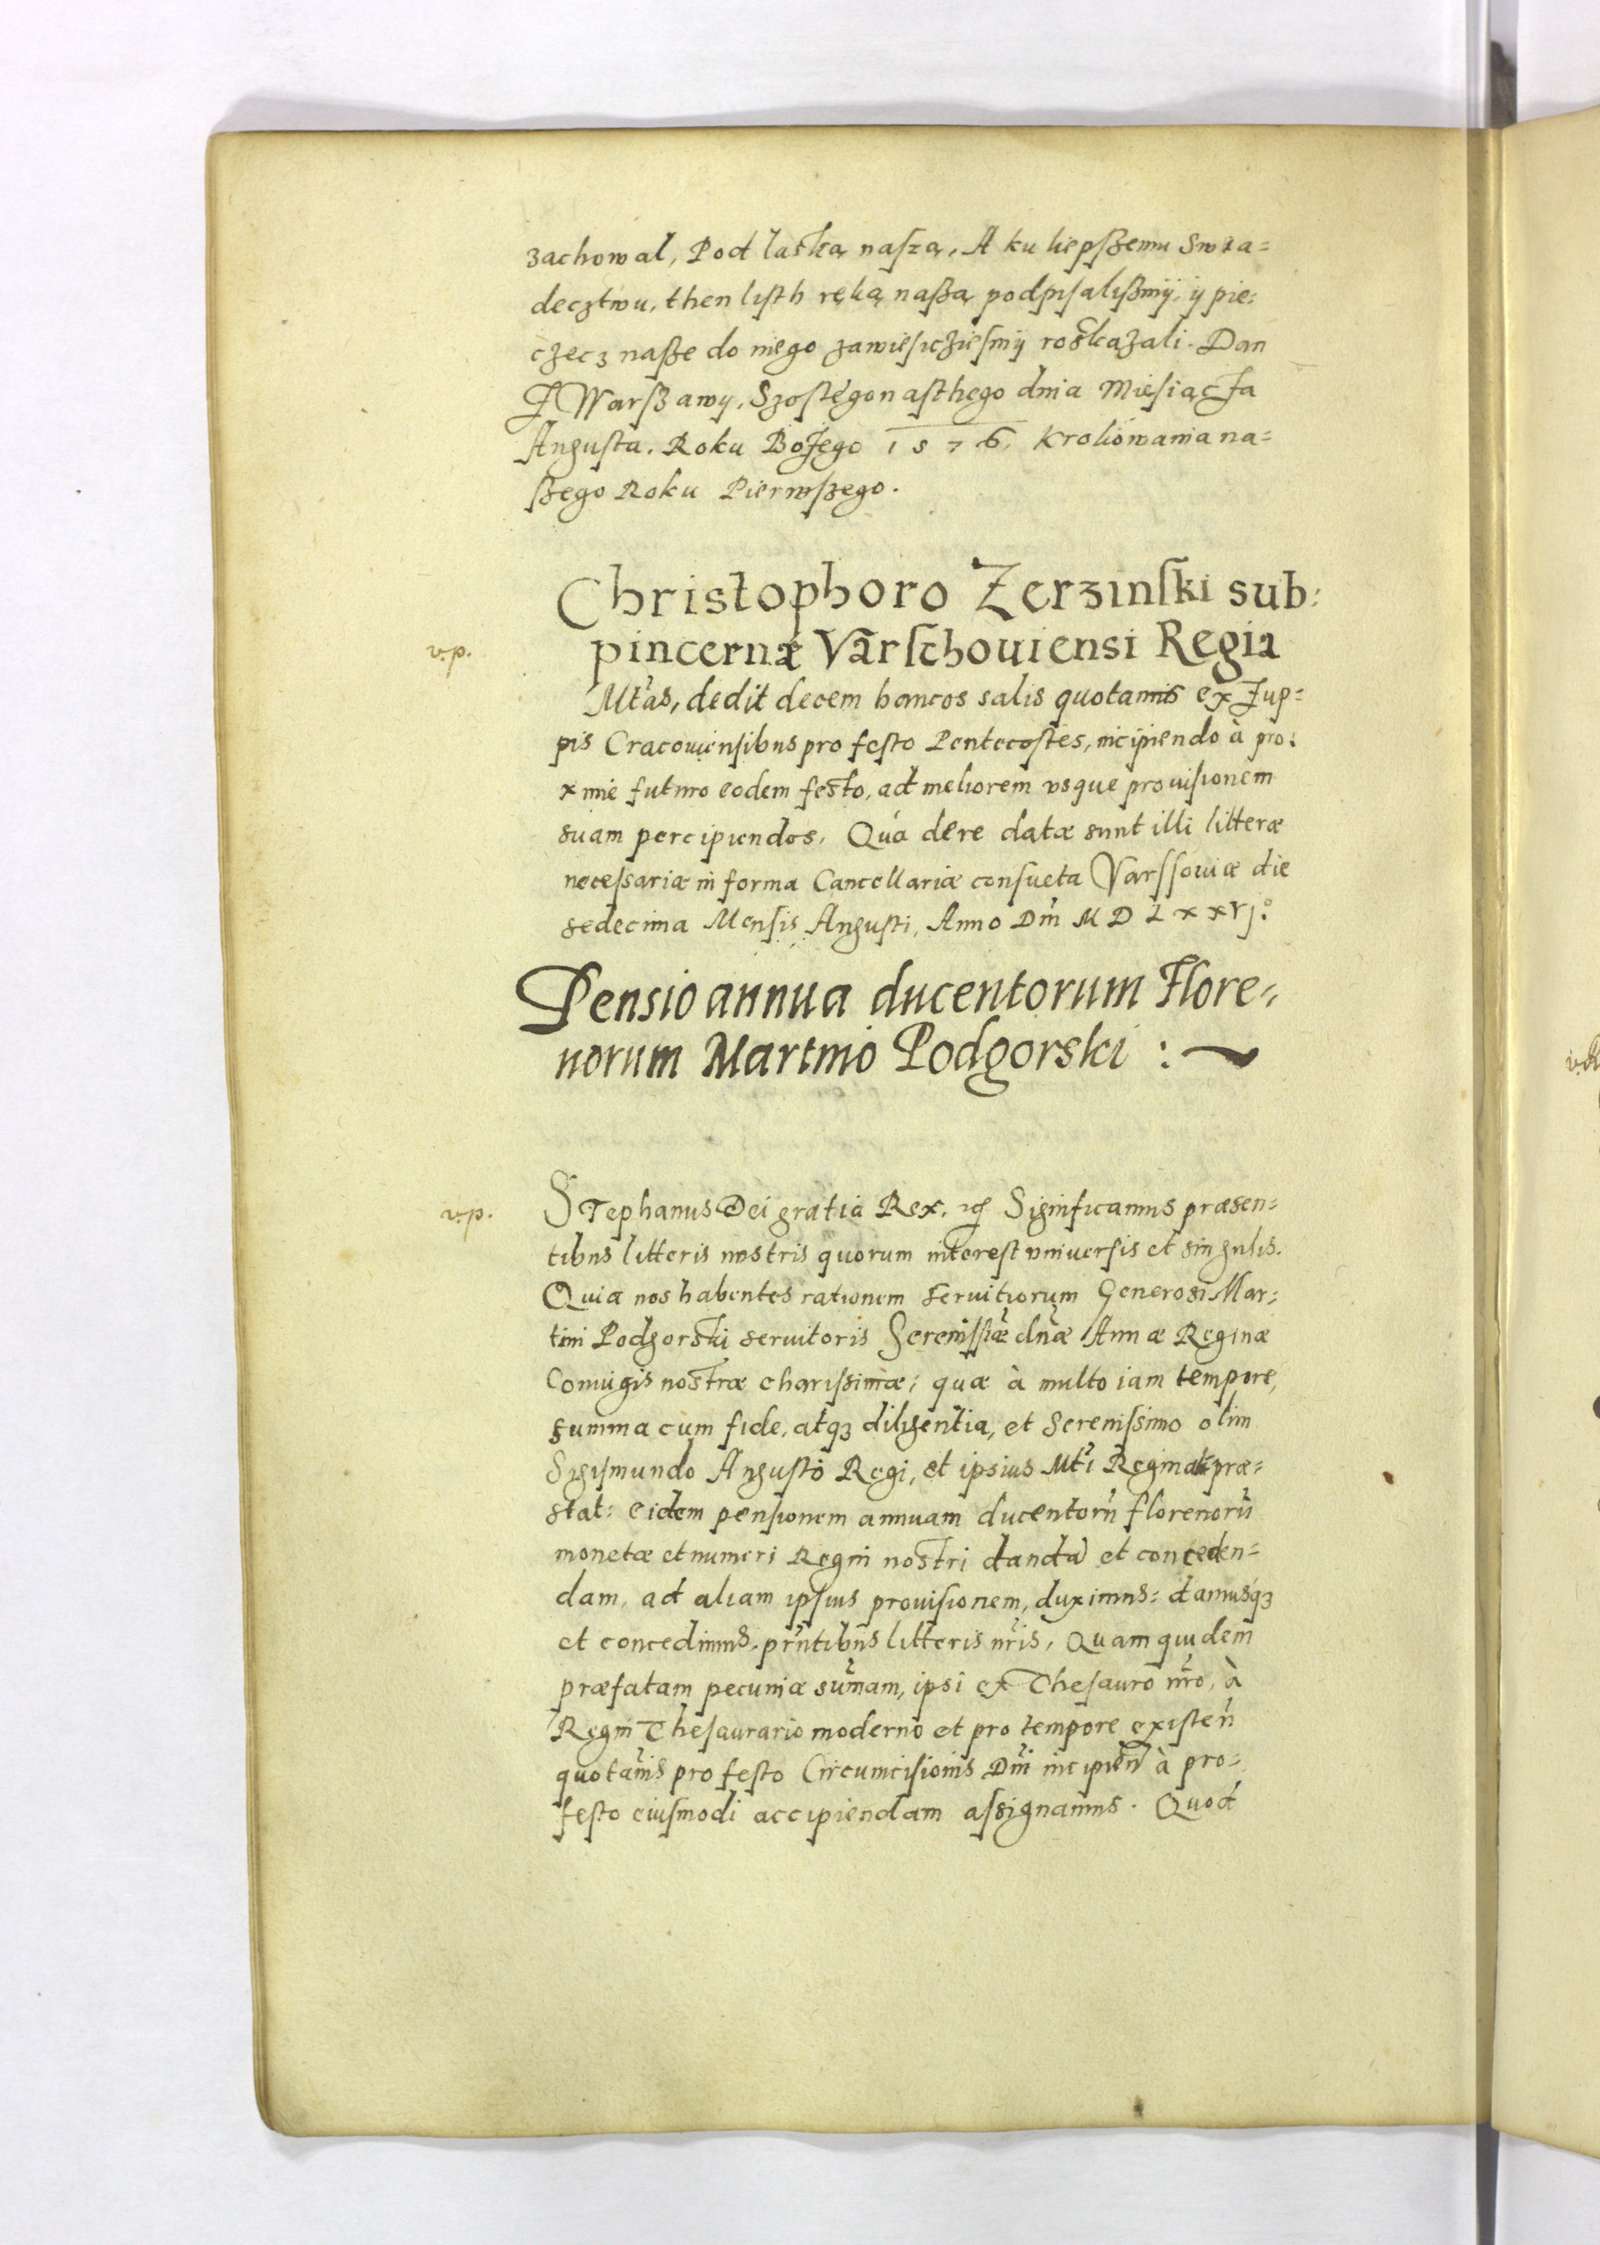 zachowal, Pod laską naszą, A ku liepszemu Swia=
decztwu, then listh ręką naßą podpisalißmÿ, ÿ pie:
częcz naße do niego zawiesiczięsmÿ roskazali. Dan
Z Warßawÿ, Szostegonasthego dnia Miesiącza
Augusta. Roku Bożego 1576. Kroliowania na=
szego Roku Pierwszego.
Christophoro Zerzinski sub:
pincernæ Varschouiensi Regia
v.p.
Mtas, dedit decem bancos salis quotannis ex Zup=
pis Cracouiensibus pro festo Pentecostes, incipiendo à pro:
xime futuro eodem festo, ad meliorem vsque prouisionem
suam percipiendos, Qua de re datæ sunt illi litteræ
necessariæ in forma Cancellariæ consueta Varssouiæ die
sedecima Mensis Augusti, Anno Dni MDLxxvj°
Pensio annua ducentorum Flore=
norum Martino Podgorski :~
v.p.
Stephanus Dei gratia Rex, Significamus præsen=
tibus litteris nostris quorum interest vniuersis et singulis.
Quia nos habentes rationem seruitiorum Generosi Mar:
tini Podgorski seruitoris Serenissiæ dnæ Annæ Reginæ
Coniugis nostræ charissimæ; quæ à multo iam tempore,
summa cum fide, atqз diligentia, et Serenissimo olim
Sigismundo Augusto Regi, et ipsius Mti Reginali præ=
stat: eidem pensionem annuam ducentorũ florenorũ
monetæ et numeri Regni nostri dandã et conceden=
dam, ad aliam ipsius prouisionem, duximus: damusqз
et concedimus, prntibus litteris nris, Quam quidem
præfatam pecuniæ sum̃am, ipsi ex Thesauro nro, à
Regni Thesaurario moderno et pro tempore existeñ
quotannis pro festo Circumcisionis Dni incipieñ à pro=
festo eiusmodi accipiendam assignamus. Quod